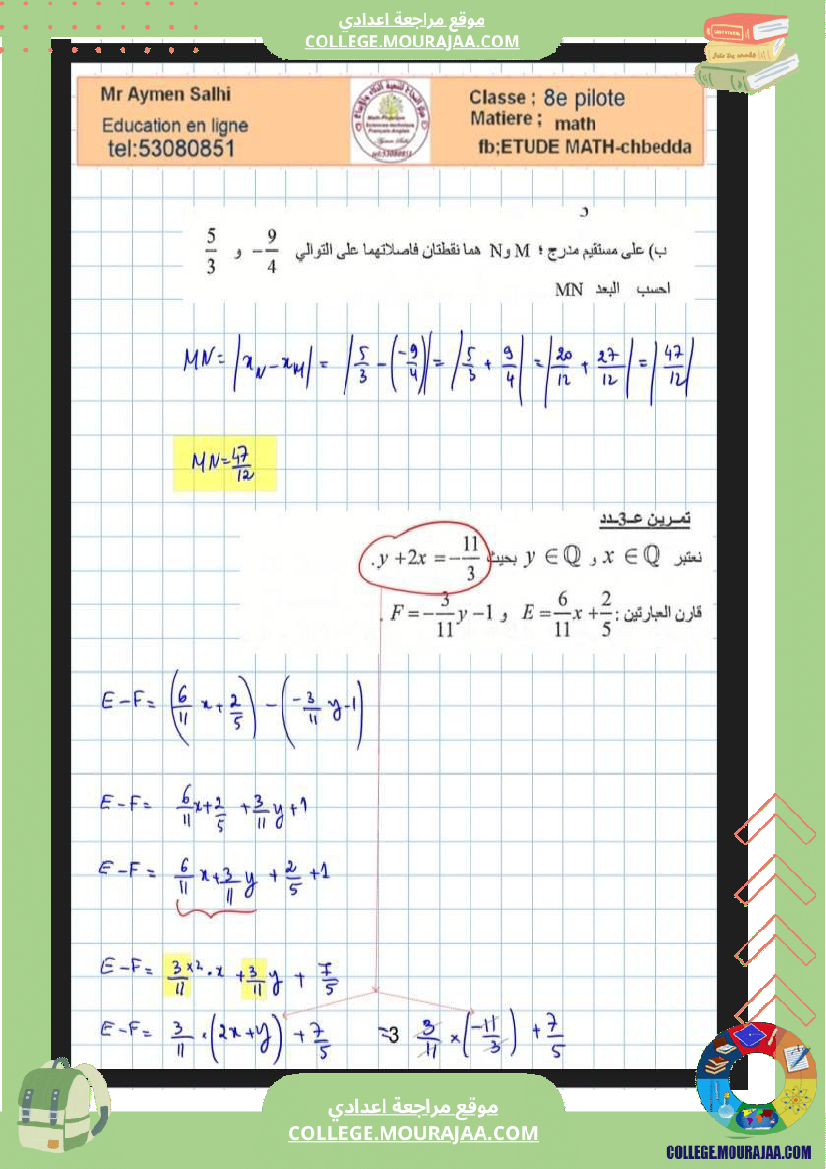 موقع مراجعة اعدادي
COLLEGE.MOURAJAA.COM
Mr Aymen Salhi
Education en ligne
tel:53080851
Classe ; 8e pilote
Matiere ; math
fb;ETUDE MATH-chbedda
ب) على مستقيم مدرج ؛ M و N هما نقطتان فاصلاتهما على التوالي -9/4 و 5/3
احسب البعد MN
MN = |x_N - x_M| = |5/3 - (-9/4)| = |5/3 + 9/4| = |20/12 + 27/12| = |47/12|
MN = 47/12
تمرين عـ3ـدد
نعتبر x ∈ ℚ و y ∈ ℚ بحيث y + 2x = -11/3.
قارن العبارتين : E = 6/11 x + 2/5 و F = -3/11 y - 1.
E - F = (6/11 x + 2/5) - (-3/11 y - 1)
E - F = 6/11 x + 2/5 + 3/11 y + 1
E - F = 6/11 x + 3/11 y + 2/5 + 1
E - F = 3/11 × 2 · x + 3/11 y + 7/5
E - F = 3/11 · (2x + y) + 7/5 =3 3/11 × (-11/3) + 7/5
موقع مراجعة اعدادي
COLLEGE.MOURAJAA.COM
COLLEGE.MOURAJAA.COM